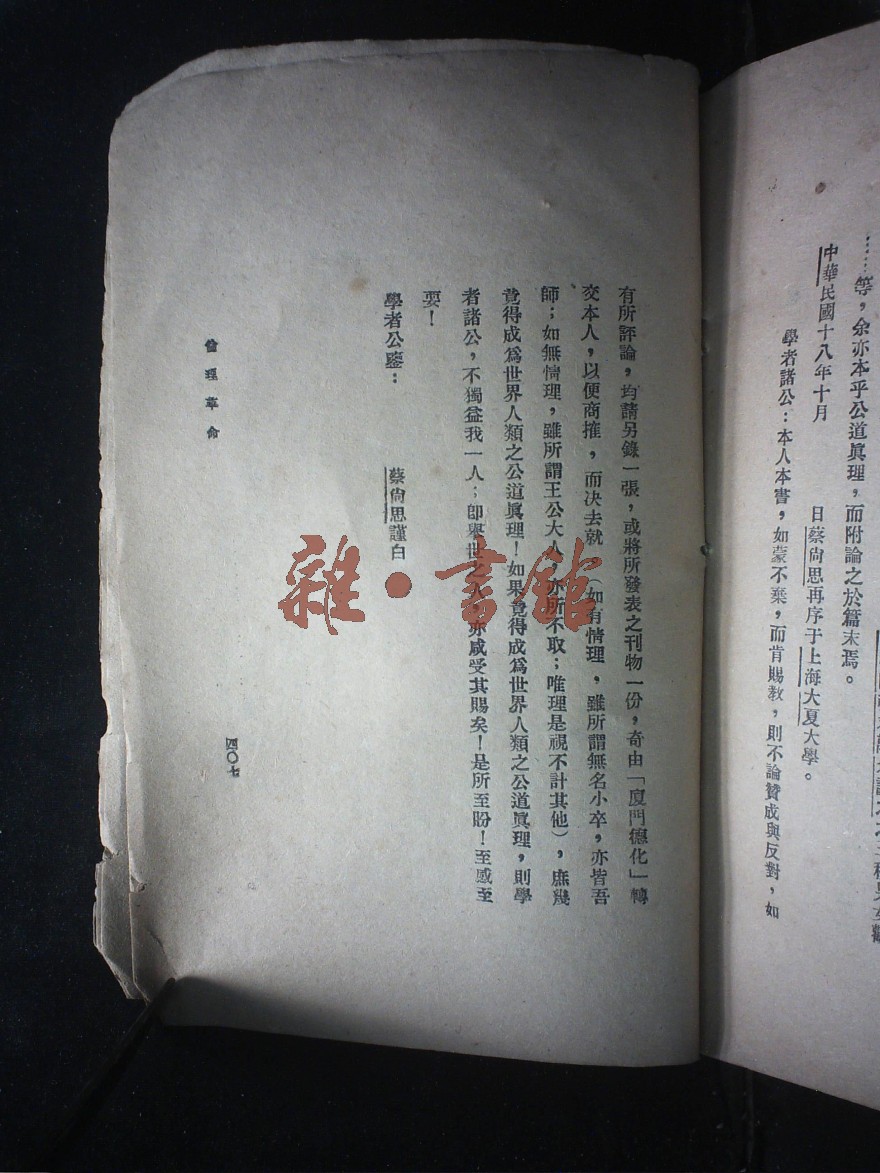 ……等，余亦本乎公道眞理，而附論之於篇末焉。
中華民國十八年十月　日蔡尙思再序于上海大夏大學。
學者諸公：本人本書，如蒙不棄，而肯賜敎，則不論贊成與反對，如
有所評論，均請另錄一張，或將所發表之刊物一份，奇由「廈門德化」轉
交本人，以便商搉，而決去就（如有情理，雖所謂無名小卒，亦皆吾
師；如無情理，雖所謂王公大人，亦所不取；唯理是視不計其他），庶幾
竟得成爲世界人類之公道眞理！如果竟得成爲世界人類之公道眞理，則學
者諸公，不獨益我一人；卽舉世之人，亦咸受其賜矣！是所至盼！至感至
要！
學者公鑒：
蔡尙思謹白
倫理革命
四〇七
雜·書館